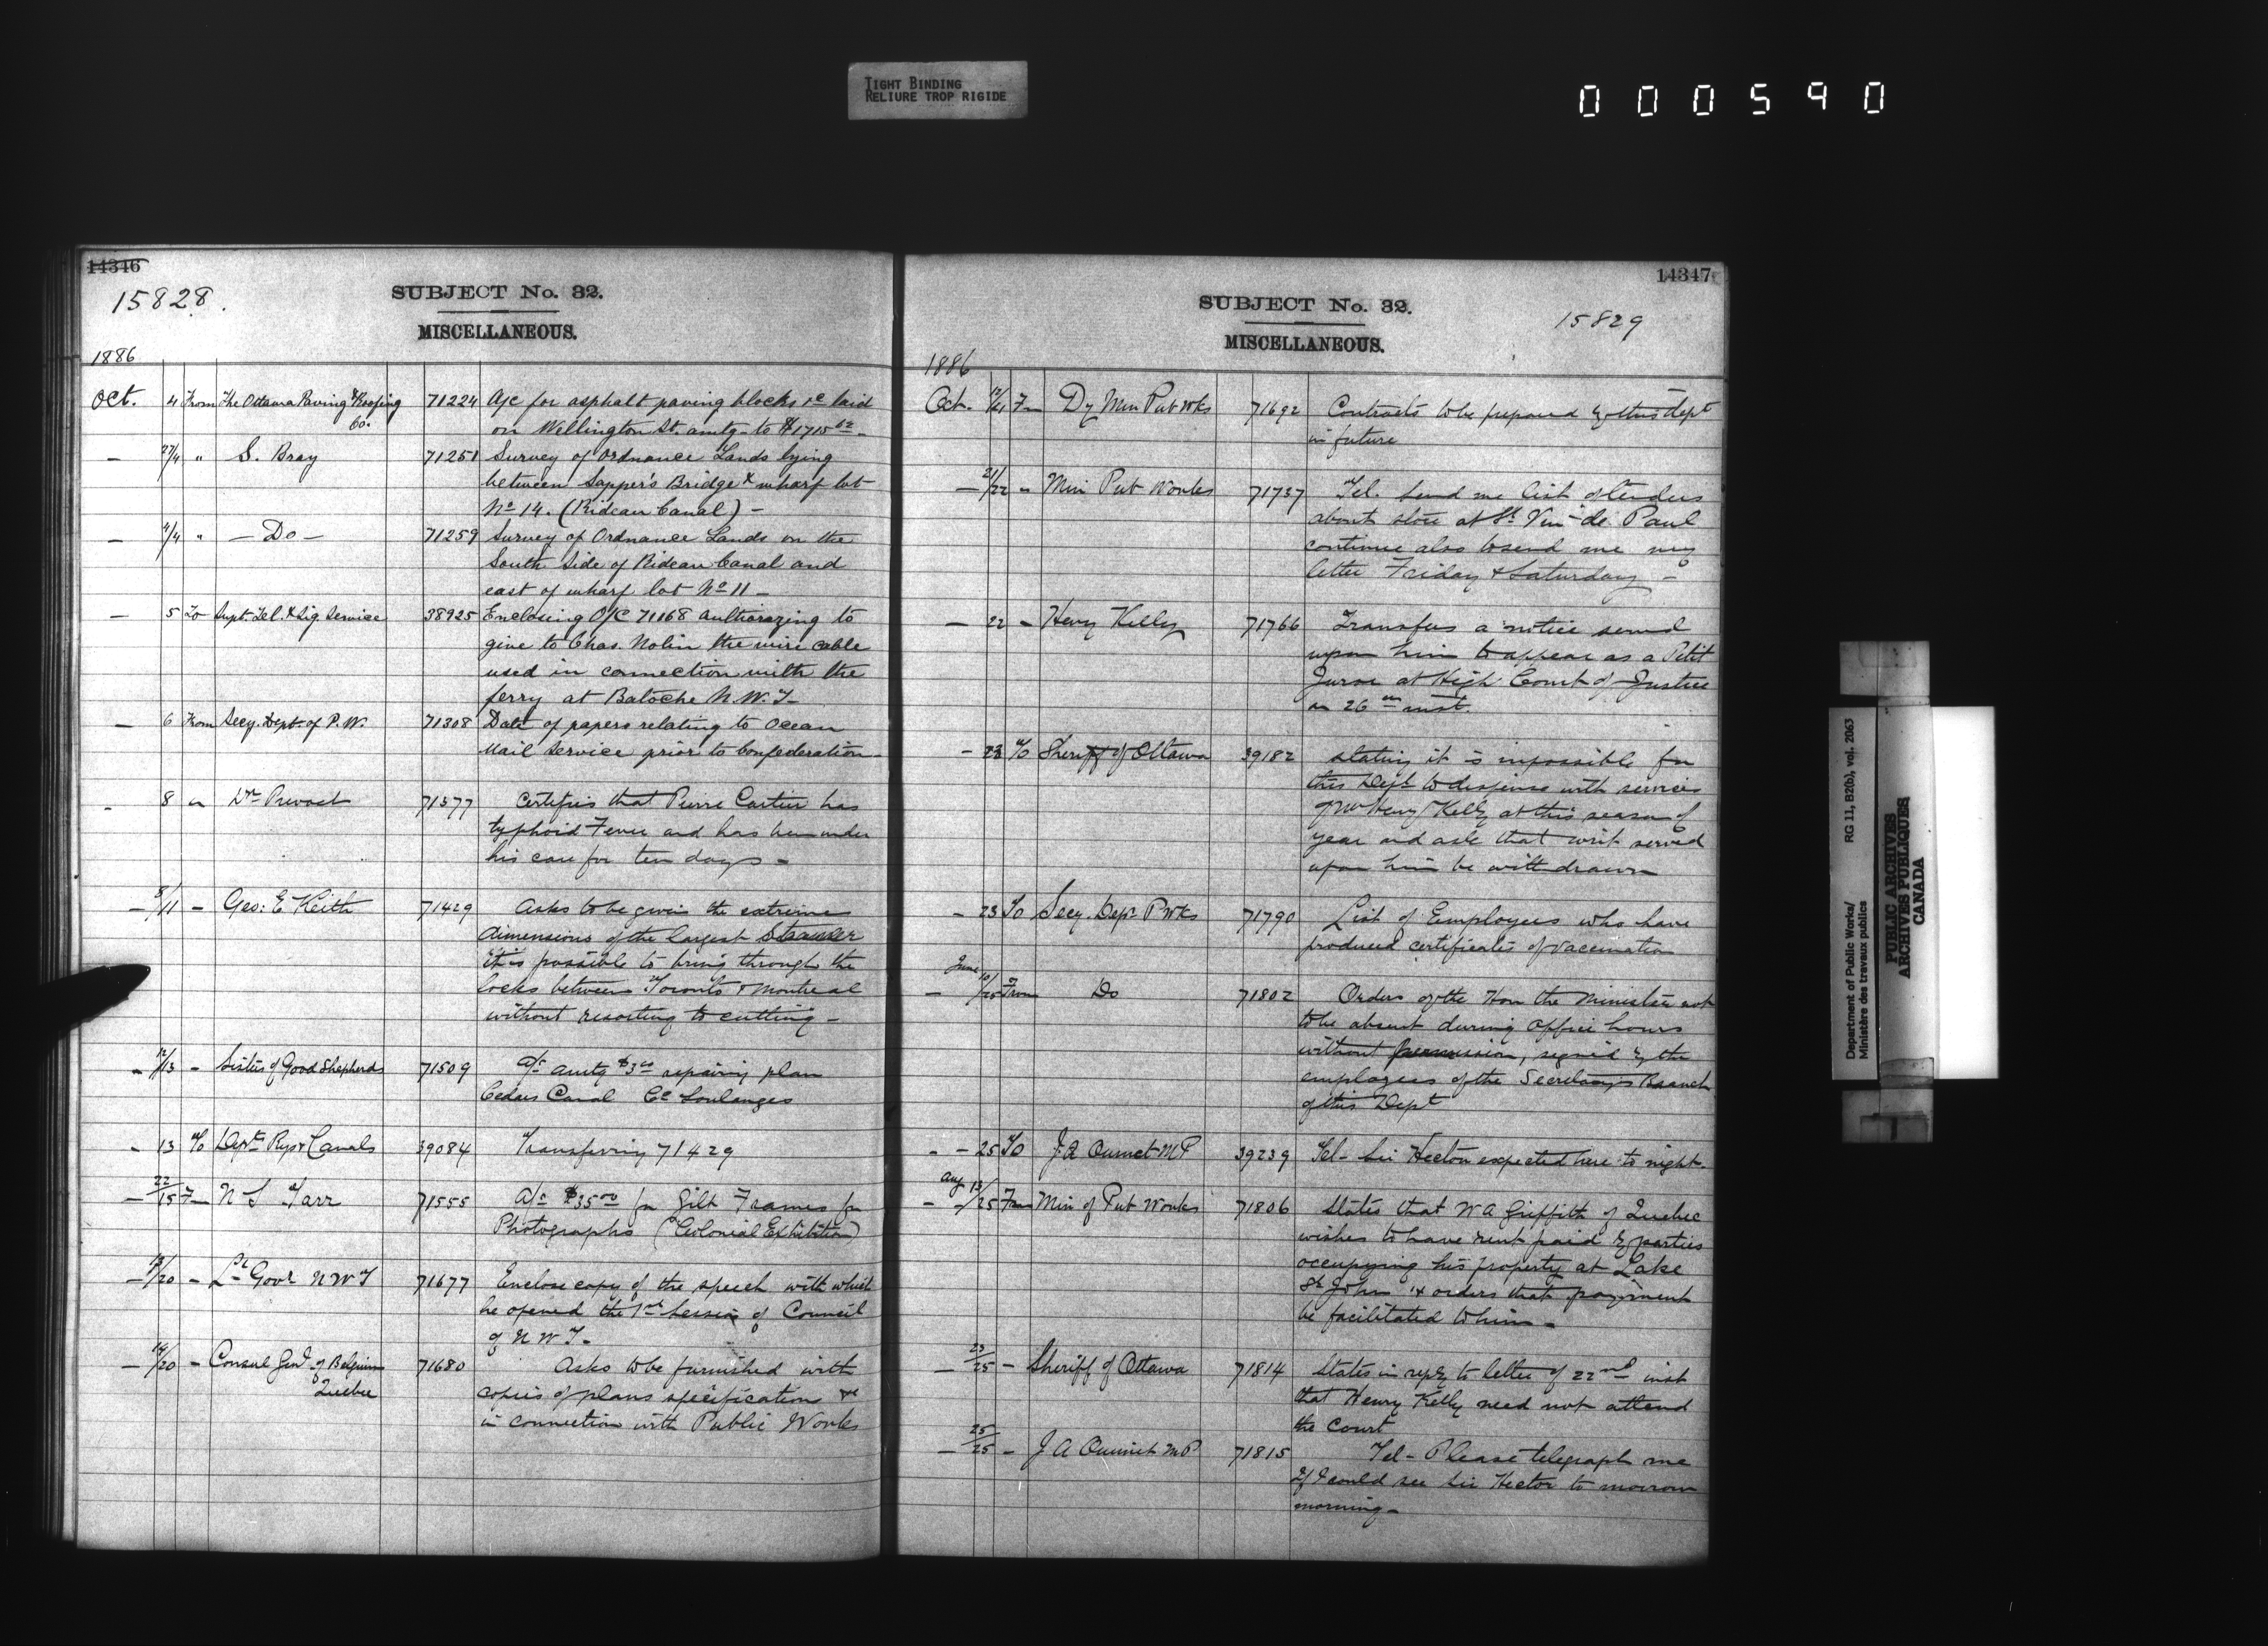 TIGHT BINDING
RELIURE TROP RIGIDE
000590
14346
15828.
SUBJECT No. 32.
MISCELLANEOUS.
1886
Oct. 4 From The Ottawa Paving & Roofing Co. 71224 A/c for asphalt paving blocks &c laid
on Wellington St. amtg. to $1715
— 27/4 " S. Bray 71251 Survey of Ordnance Lands lying
between Sapper's Bridge & wharf lot
No 14. (Rideau Canal) —
— 4/4 " — Do — 71259 Survey of Ordnance Lands on the
South Side of Rideau Canal and
east of wharf lot No 11 —
— 5 To Supt. Tel. & Sig. Service 38925 Enclosing O/C 71168 authorizing to
give to Chas. Nolin the wire cable
used in connection with the
ferry at Batoche N.W.T—
— 6 From Secy. Dept of P.W. 71308 Date of papers relating to Ocean
Mail Service prior to Confederation—
- 8 " Dr Prevost 71377 Certifies that Pierre Cartier has
typhoid Fever and has been under
his care for ten days —
— 8/11 — Geo: E Keith 71429 Asks to be given the extreme
dimensions of the largest Steamer
it is possible to bring through the
locks between Toronto & Montreal
without resorting to cutting —
- 12/13 - Sisters of Good Shepherds 71509 A/c amtg $3 repairing plan
Cedars Canal Co Soulanges
- 13 To Dept Rys & Canals 39084 Transferring 71429
— 22/15 Fm N S Tarr 71555 A/c $35 00 for Gilt Frames for
Photographs (Colonial Exhibition)
— 13/20 — Lt Govr N W T 71677 Enclose copy of the speech with which
he opened the 1st Session of Council
of N W T —
— 14/20 — Consul Genl of Belgium
Quebec 71680 Asks to be furnished with
copies of plans specification &c
in connection with Public Works
14347
SUBJECT No. 32.
15829
MISCELLANEOUS.
1886
Oct. 12/21 Fm Dy Min Pub Wks 71692 Contracts to be prepared by this dept
in future
— 21/22 - Min Pub Works 71737 Tel. Send me list of tenders
about store at St Vin de Paul
continue also to send me my
letter Friday & Saturday —
— 22 - Henry Kelly 71766 Transfers a notice served
upon him to appear as a Petit
Juror at High Court of Justice
on 26 inst.
- 23 To Sheriff of Ottawa 39182 Stating it is impossible for
this Dept to dispense with services
of Mr Henry Kelly at this season of
year and ask that writ served
upon him be withdrawn
- 23 To Secy. Dept P Wks 71790 List of Employees who have
produced certificates of vaccination
— June 10/25 From Do 71802 Orders of the Hon the Minister not
to be absent during office hours
without permission, signed by the
employees of the Secretary's Branch
of this Dept
- - 25 To J. A Ouimet M P 39239 Tel - Sir Hector expected here to night.
- Aug 13/25 From Min of Pub Works 71806 States that W A Griffith of Quebec
wishes to have rent paid by parties
occupying his property at Lake
St John & orders that payment
be facilitated to him —
— 23/25 — Sheriff of Ottawa 71814 States in reply to letter of 22nd inst
that Henry Kelly need not attend
the Court
— 25/25 - J A Ouimet M P 71815 Tel - Please telegraph me
if I could see Sir Hector to morrow
morning —
Department of Public Works/ RG 11, B2(b), vol. 2063
Ministère des travaux publics
PUBLIC ARCHIVES
ARCHIVES PUBLIQUES
CANADA